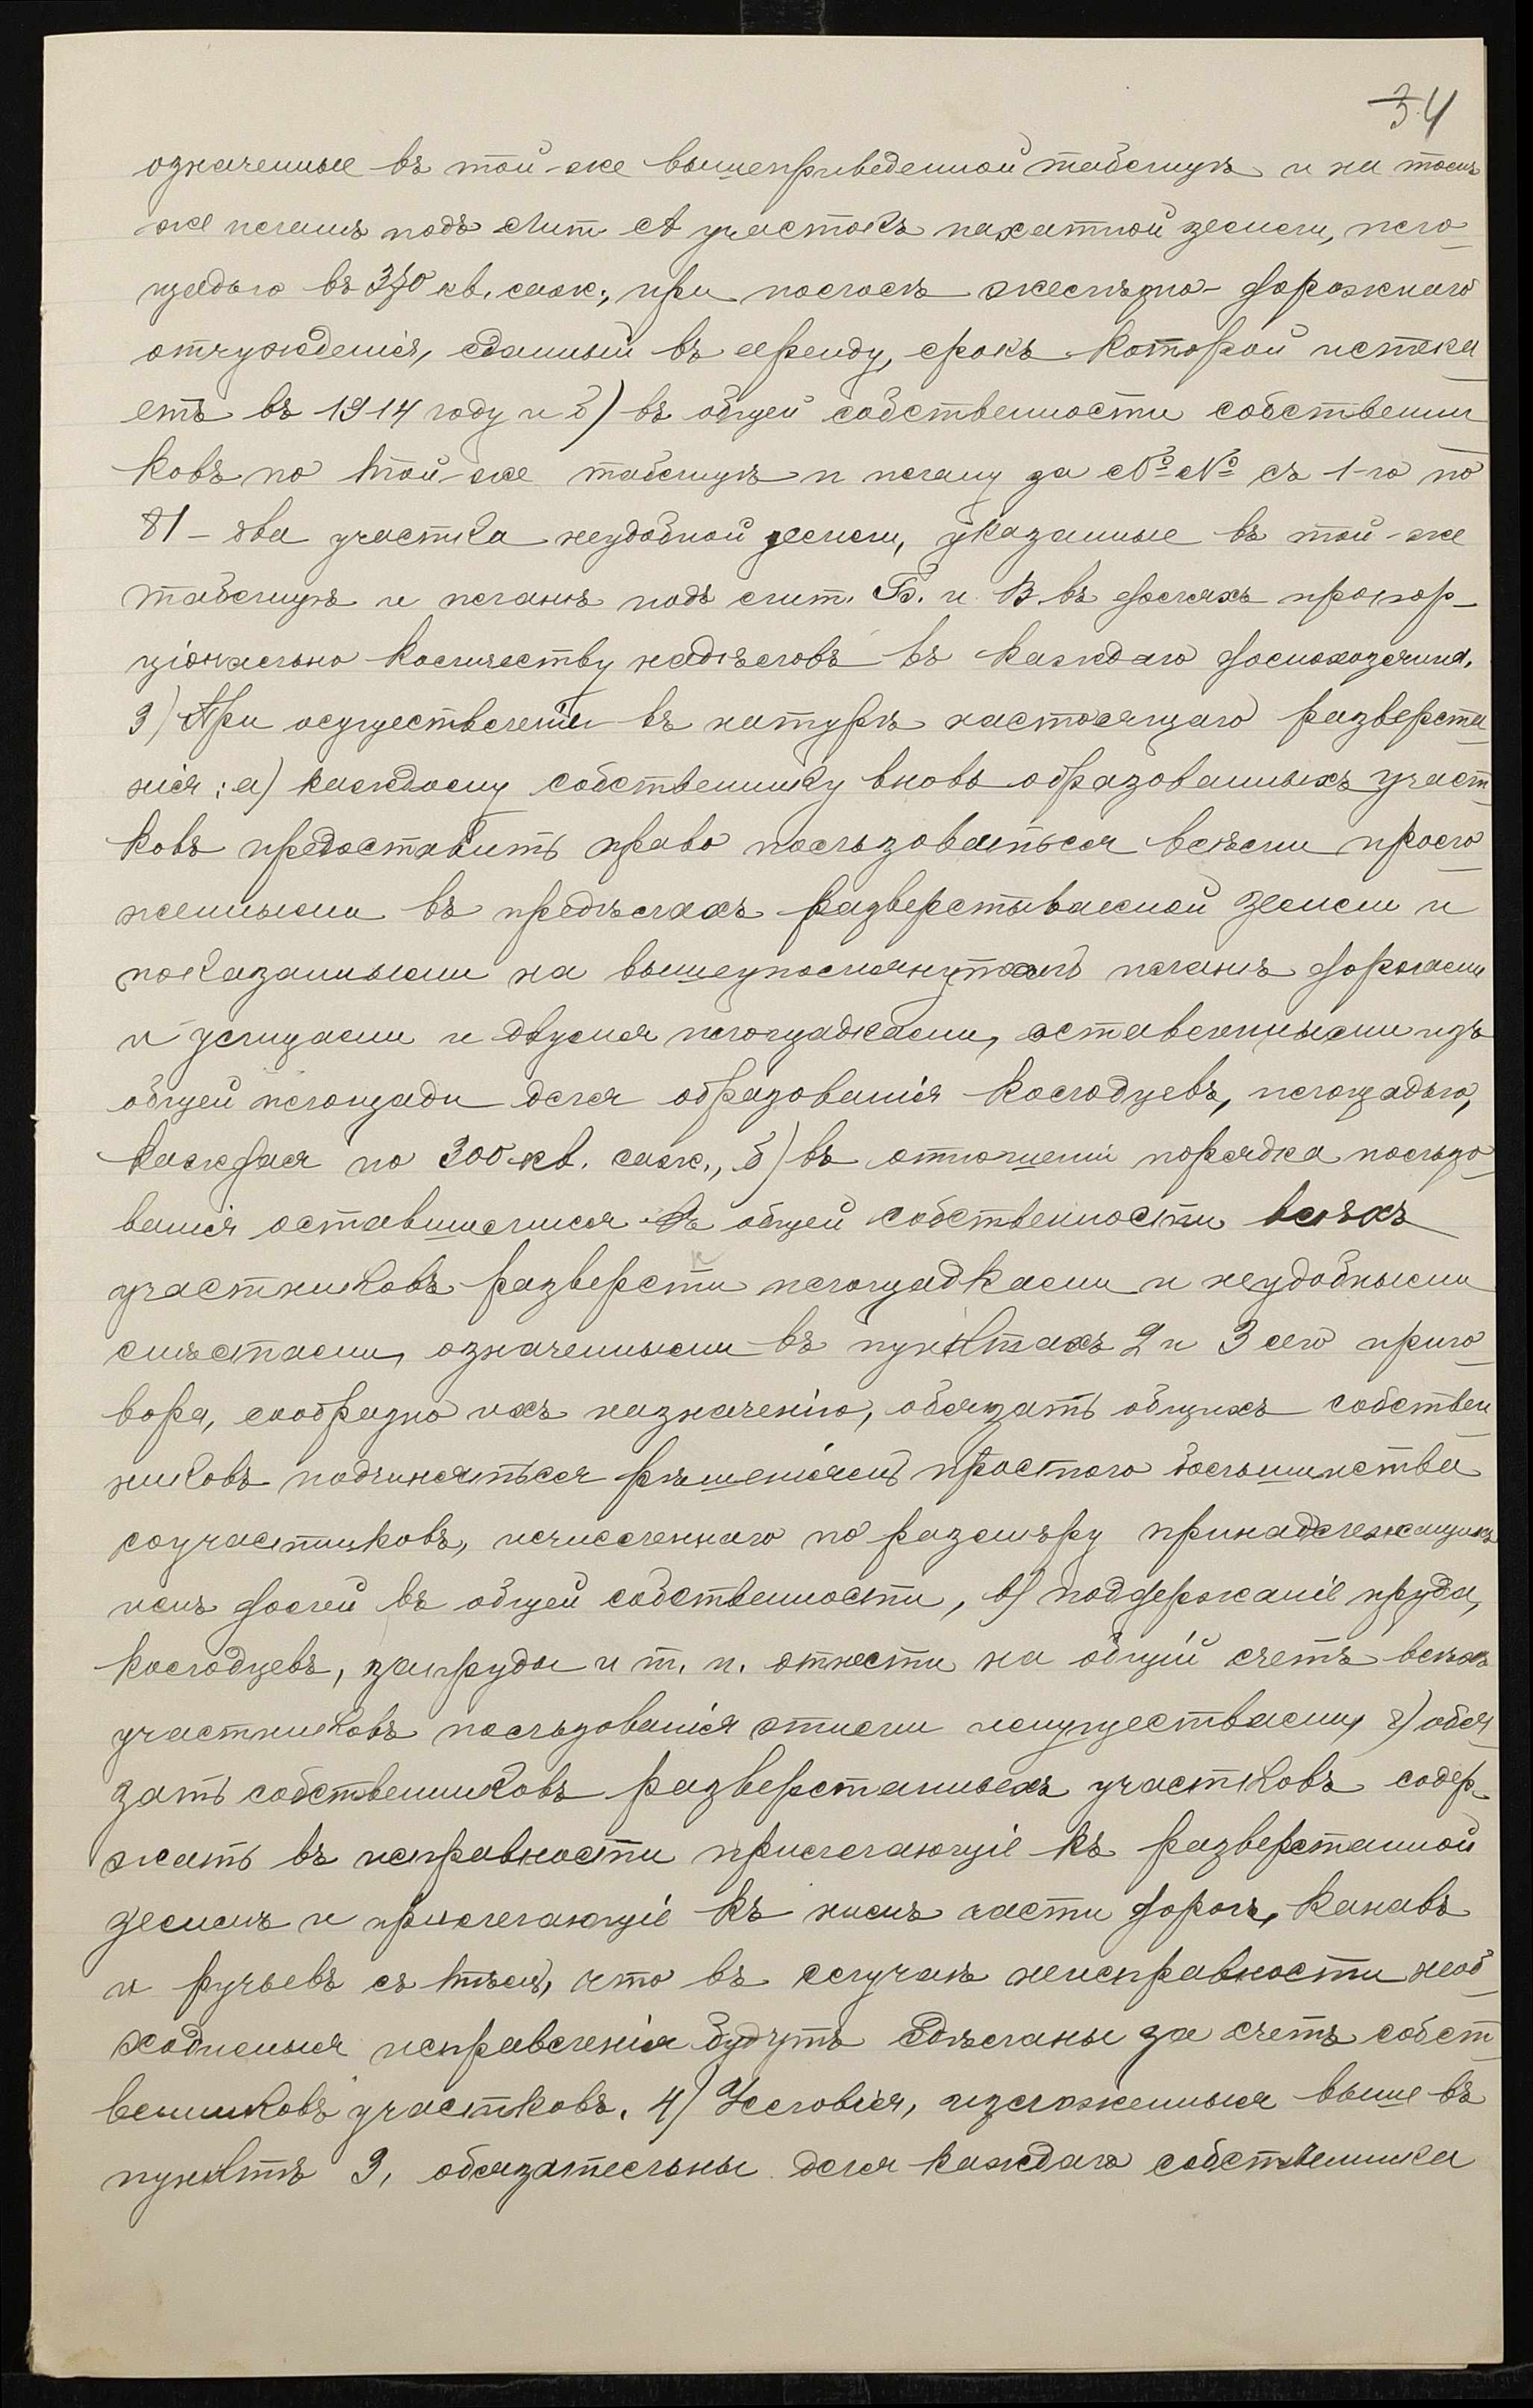 34
означенные въ той-же вышеприведенной таблицѣ и на томъ
же планѣ подъ Лит А участокъ пахатной земли, пло-
щадью въ 370 кв. саж., при полосѣ желѣзно-дорожнаго
отчужденія, сданный въ аренду, срокъ которой истека-
етъ въ 1914 году и б) въ общей собственности собственни-
ковъ по той-же таблицѣ и плану за №№ съ 1-го по
81 - два участка неудобной земли, указанные въ той-же
таблицѣ и планѣ подъ лит. Б. и В. въ доляхъ пропор-
ціонально количеству надѣловъ въ каждаго домохозяина.
3) При осуществленіи въ натурѣ настоящаго разверста-
нія: а) каждому собственнику вновь образованныхъ участ-
ковъ предоставить право пользоваться всѣми проло-
женными въ предѣлахъ разверстываемой земли и
показанными на вышеупомянутомъ планѣ дорогами
и улицами и двумя площадками, оставленными изъ
общей площади для образованія колодцевъ, площадью,
каждая по 300 кв. саж., б) въ отношеніи порядка пользо-
ванія оставшимися въ общей собственности всѣхъ
участниковъ разверстки площадками и неудобными
мѣстами, означенными въ пунктахъ 2 и 3 сего приго-
вора, сообразно ихъ назначенію, обязать общихъ собствен-
никовъ подчиняться рѣшеніямъ простого большинства
соучастниковъ, исчисленнаго по размѣру принадлежащихъ
имъ долей въ общей собственности, в) поддержаніе пруда,
колодцевъ, запруды и т. п. отнести на общій счетъ всѣхъ
участниковъ пользованія этими имуществами, г) обя-
зать собственниковъ разверстанныхъ участковъ содер-
жать въ исправности прилегающіе къ разверстанной
землѣ и прилегающіе къ нимъ части дорогъ, канавъ
и ручьевъ съ тѣмъ, что въ случаѣ неисправности необ-
ходимыя исправленія будутъ сдѣланы за счетъ собст-
венниковъ участковъ. 4) Условія, изложенныя выше въ
пунктѣ 3, обязательны для каждаго собственника